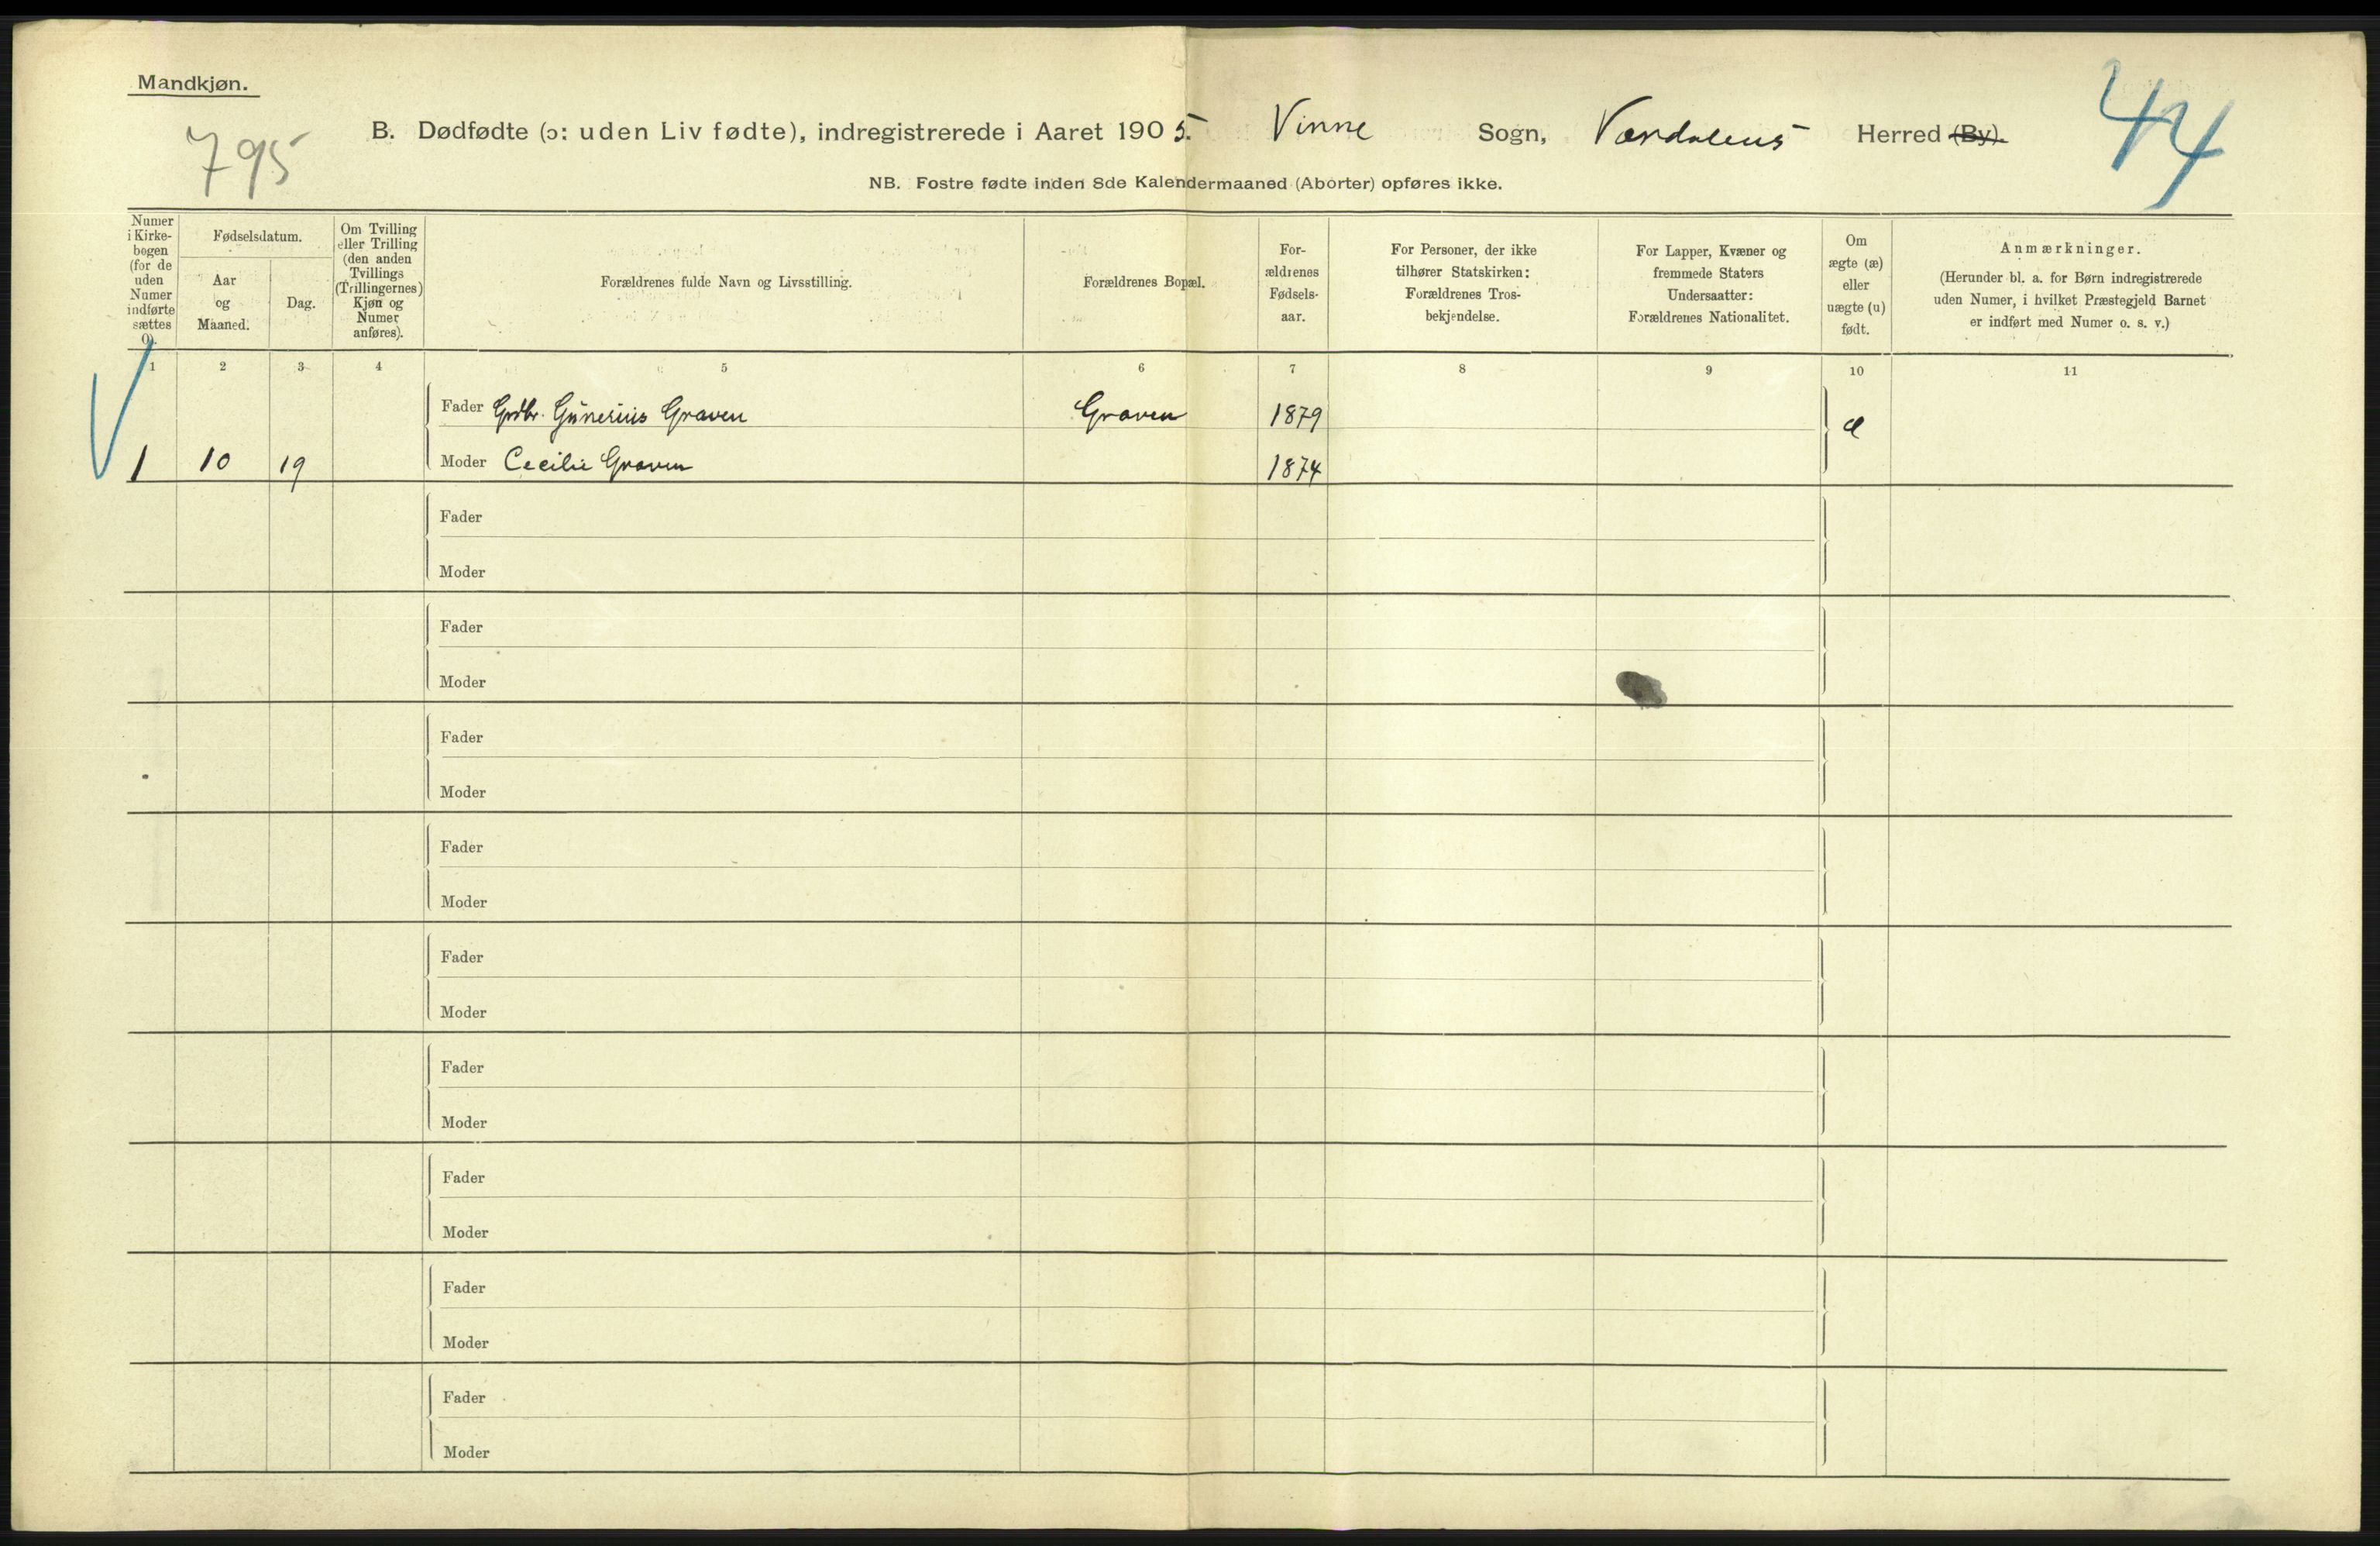 Mandkjøn.
795
44
B. Dødfødte (ɔ: uden Liv fødte), indregistrerede i Aaret 1905. Vinne Sogn, Værdalens Herred (By).
NB. Fostre fødte inden 8de Kalendermaaned (Aborter) opføres ikke.
Numer
i Kirke-
bogen
(for de
uden
Numer
indførte
sættes
0).
Fødselsdatum.
Aar
og
Maaned.
Dag.
Om Tvilling
eller Trilling
(den anden
Tvillings
(Trillingernes)
Kjøn og
Numer
anføres).
Forældrenes fulde Navn og Livsstilling.
Forældrenes Bopæl.
For-
ældrenes
Fødsels-
aar.
For Personer, der ikke
tilhører Statskirken:
Forældrenes Tros-
bekjendelse.
For Lapper, Kvæner og
fremmede Staters
Undersaatter:
Forældrenes Nationalitet.
Om
ægte (æ)
eller
uægte (u)
født.
Anmærkninger.
(Herunder bl. a. for Børn indregistrerede
uden Numer, i hvilket Præstegjeld Barnet
er indført med Numer o. s. v.)
1 2 3 4 5 6 7 8 9 10 11
Fader Grdbr. Günerius Graven Graven 1879 æ
1 10 19 Moder Cecilie Graven 1874
Fader
Moder
Fader
Moder
Fader
Moder
Fader
Moder
Fader
Moder
Fader
Moder
Fader
Moder
Fader
Moder
Fader
Moder